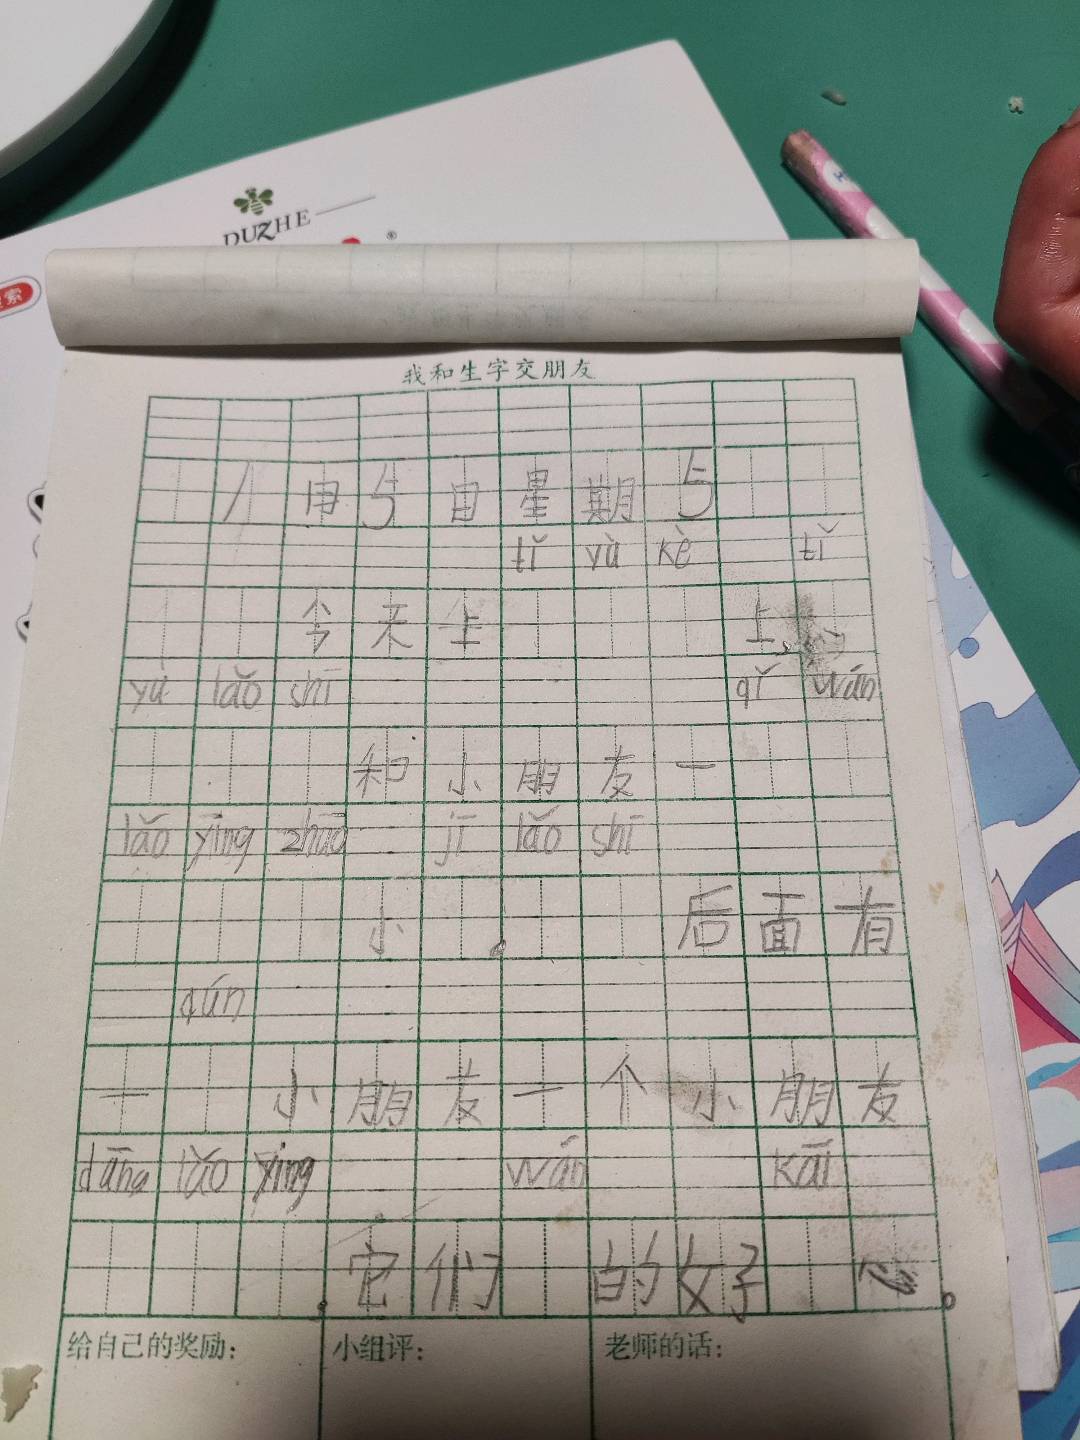 DUZHE
索
我和生字交朋友
星期
tǐ yù kè tǐ
今天上上,
yù lǎo shī qǐ wán
和小朋友一
lǎo yīng zhuō jī lǎo shī
小。后面有
qún
一小朋友一个小朋友
dāng lǎo yīng wán kāi
。它们的女子心。
给自己的奖励: 小组评: 老师的话: